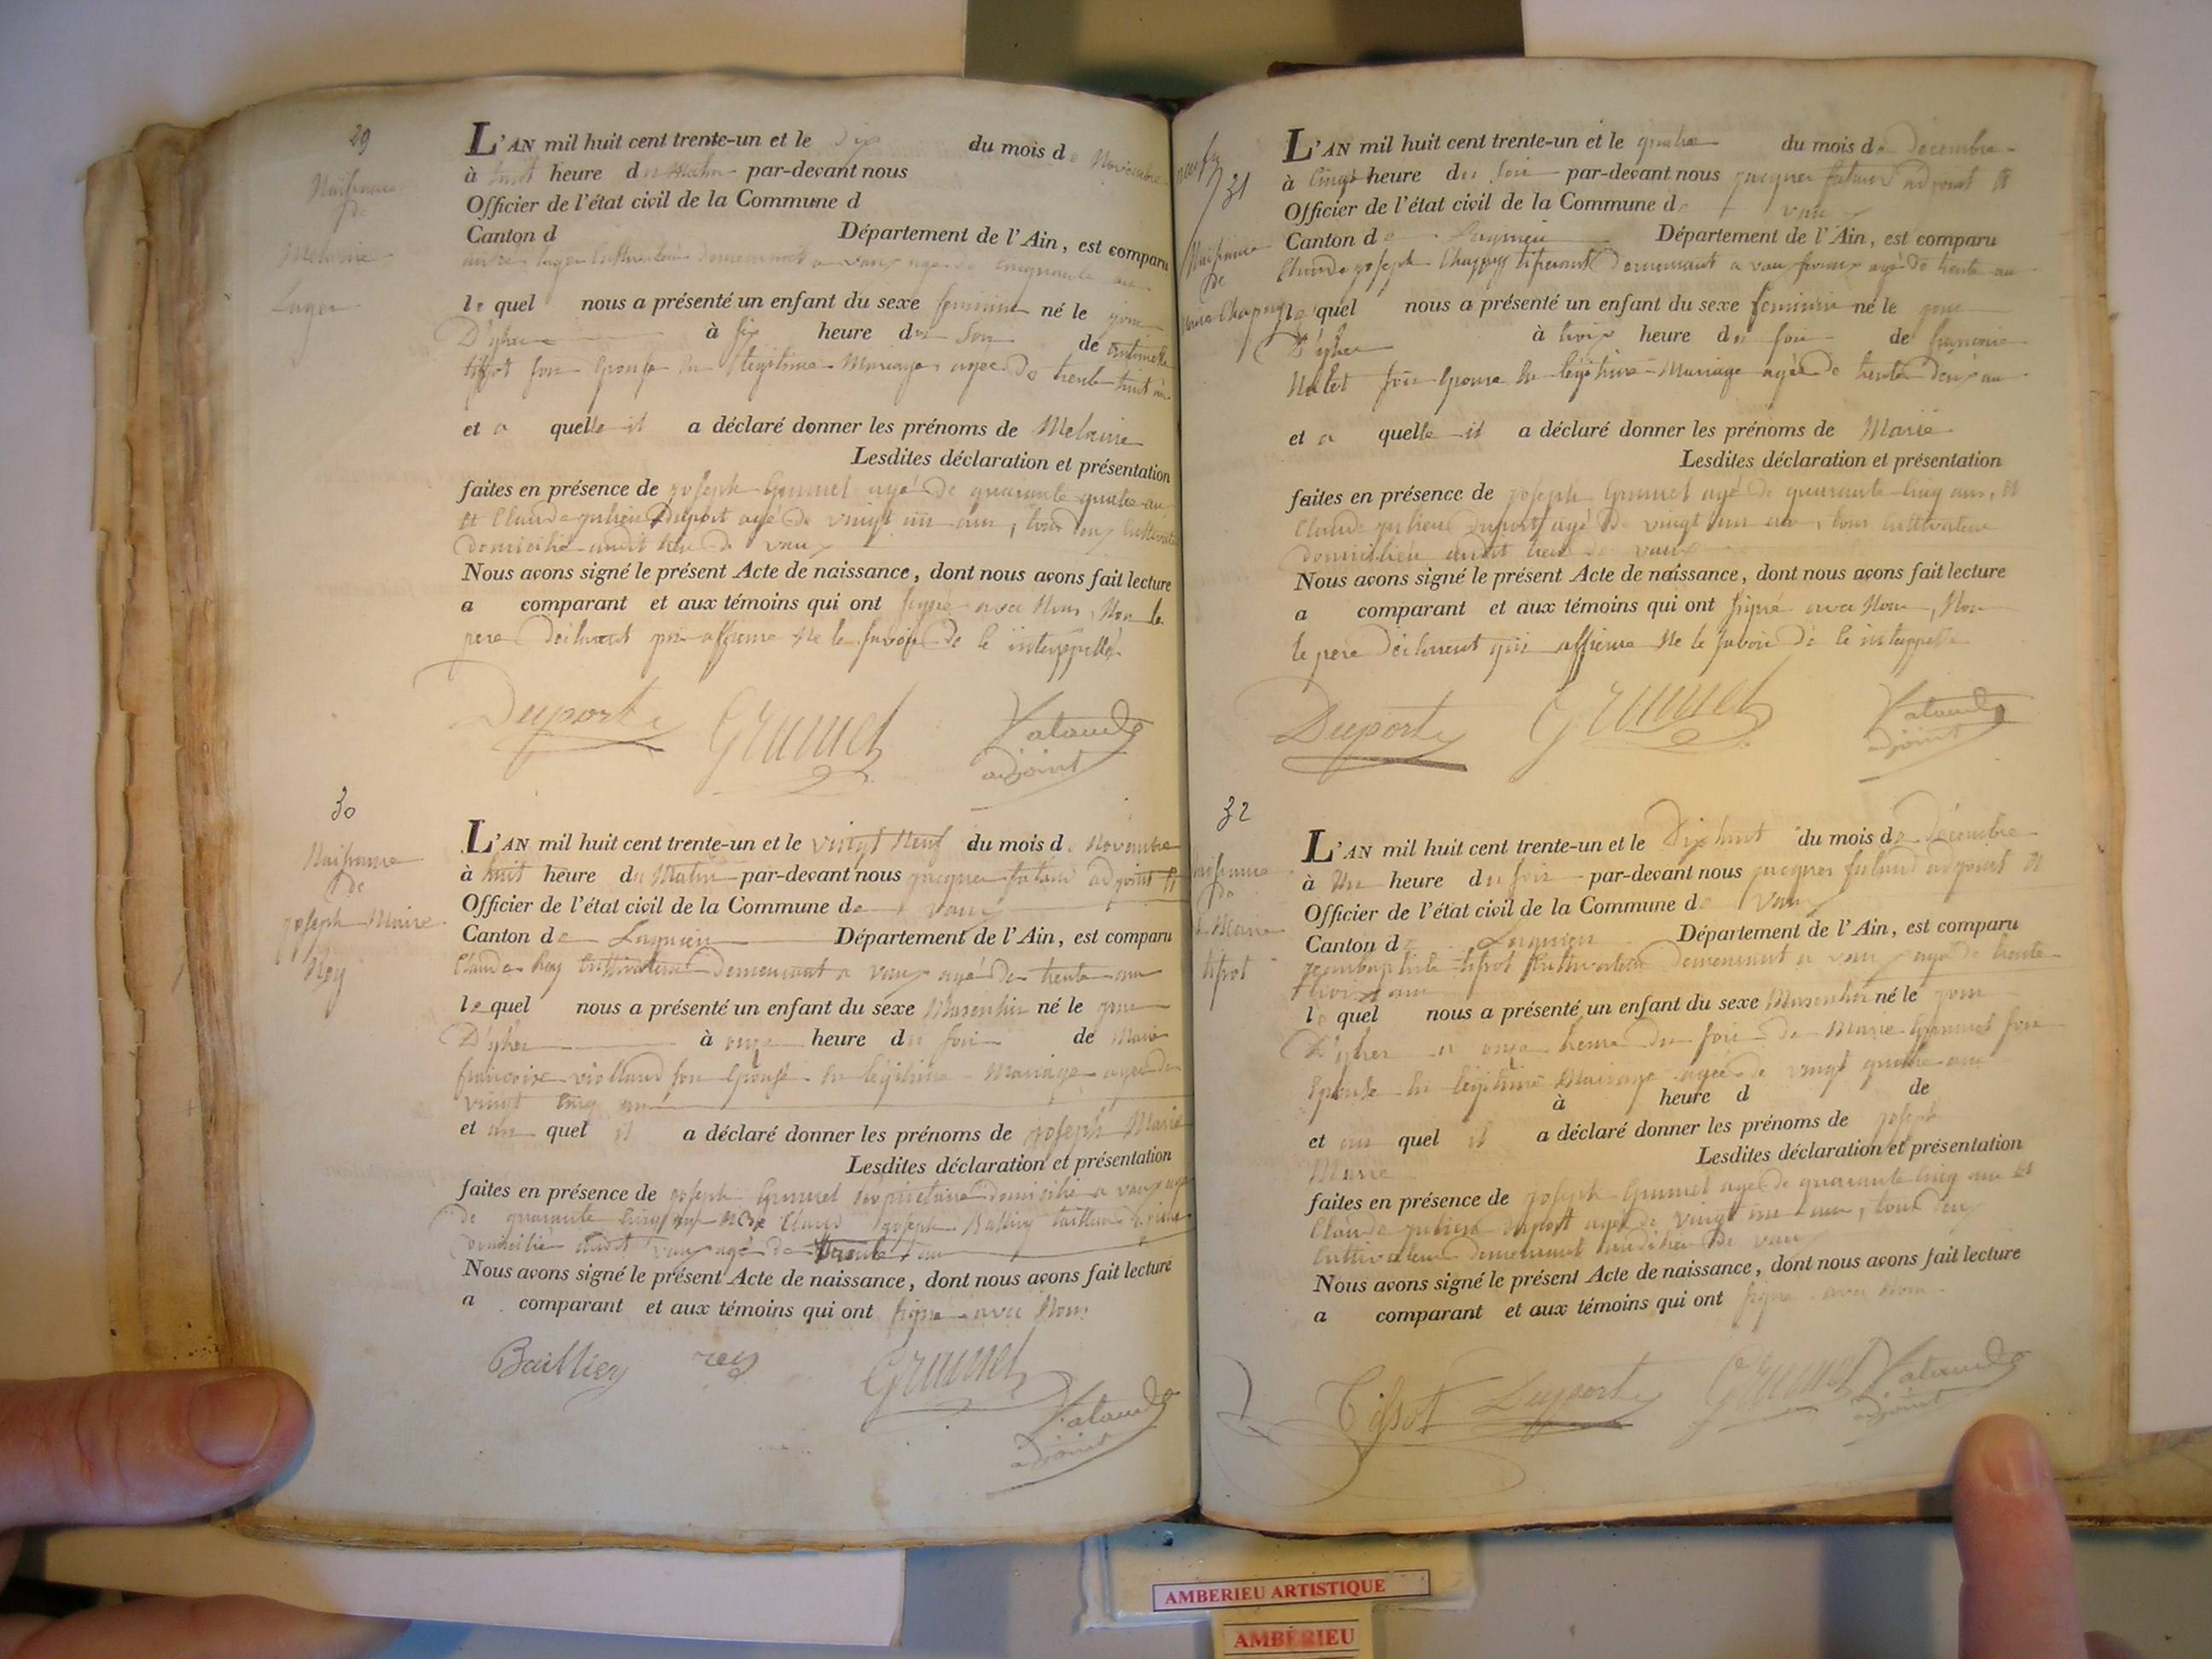 29
Naissance
de
Melanie
Lager
L'AN mil huit cent trente-un et le dix du mois de Novembre
à huit heure du Matin par-devant nous
Officier de l'état civil de la Commune d
Canton d Département de l'Ain, est comparu
Lager Cultivateur demeurant a vaux agé de Cinquante an
le quel nous a présenté un enfant du sexe feminin né le jour
D'yher à six heure du Soir de antoinette
tissot son Epouse en legitime Mariage agee de trente huit an
et a quelle il a déclaré donner les prénoms de Melanie
Lesdites déclaration et présentation
faites en présence de joseph Grumel agé de quarante quatre an
et Claude julien Duport agé de vingt un an, tous deux Cultivateur
domicilié audit lieu de vaux
Nous avons signé le présent Acte de naissance, dont nous avons fait lecture
a comparant et aux témoins qui ont signé avec Nous, Non le
pere déclarant qui affirme Ne le savoir de ce interppellé
Duport Grumel Fataud
adjoint
30
Naissance
de
joseph Marie
Rey
L'AN mil huit cent trente-un et le vingt Neuf du mois de Novembre
à huit heure du Matin par-devant nous jacques fataud adjoint et
Officier de l'état civil de la Commune de vaux
Canton de Lagnieu Département de l'Ain, est comparu
Claude Rey Cultivateur demeurant a vaux agé de trente an
le quel nous a présenté un enfant du sexe Masculin né le jour
D'yher à onze heure du soir de Marie
francoise violland son Epouse en legitime Mariage agee de
vingt cinq an
et au quel il a déclaré donner les prénoms de joseph Marie
Lesdites déclaration et présentation
faites en présence de joseph Grumel propriétaire domicilié a vaux agé
de quarante cinq joseph Bailliey
domicilié audit vaux agé de trente an
Nous avons signé le présent Acte de naissance, dont nous avons fait lecture
a comparant et aux témoins qui ont signé avec Nous
Bailliey rey Grumel
Fataud
adjoint
31
Naissance
de
Marie Chapuy
L'AN mil huit cent trente-un et le quatre du mois de Decembre
à Cinq heure du Soir par-devant nous jacques fataud adjoint et
Officier de l'état civil de la Commune de vaux
Canton de Lagnieu Département de l'Ain, est comparu
Claude joseph Chapuy tisserant demeurant a vaux agé de trente an
le quel nous a présenté un enfant du sexe feminin né le jour
D'yher à trois heure du soir de francoise
son Epouse en légitime Mariage agée de trente deux an
et a quelle il a déclaré donner les prénoms de Marie
Lesdites déclaration et présentation
faites en présence de joseph Grumel agé de quarante Cinq ans, et
Claude julien Duport agé de vingt un an, tous Cultivateur
domicilieu audit lieu de vaux
Nous avons signé le présent Acte de naissance, dont nous avons fait lecture
a comparant et aux témoins qui ont signé avec Nous, Non
le pere déclarant qui affirme Ne le savoir de ce interppellé
Duport Grumel Fataud
adjoint
32
Naissance
de
Marie
tissot
L'AN mil huit cent trente-un et le Dix huit du mois de Décembre
à Un heure du soir par-devant nous jacques fataud adjoint et
Officier de l'état civil de la Commune de Vaux
Canton de Lagnieu Département de l'Ain, est comparu
jeanbaptiste tissot Cultivateur demeurant a vaux agé de trente
trois an
le quel nous a présenté un enfant du sexe Masculin né le jour
D'yher a onze heure du soir de Marie Grumel son
Epouse en légitime Mariage agée de vingt quatre an
à heure d de
et au quel il a déclaré donner les prénoms de joseph
Marie Lesdites déclaration et présentation
faites en présence de joseph Grumel agé de quarante cinq an et
Claude julien Duport agé de vingt un an, tous deux
Cultivateur demeurant audit lieu de vaux
Nous avons signé le présent Acte de naissance, dont nous avons fait lecture
a comparant et aux témoins qui ont signé avec Nous
Tissot Duport Grumel Fataud
adjoint
AMBERIEU ARTISTIQUE
AMBÉRIEU